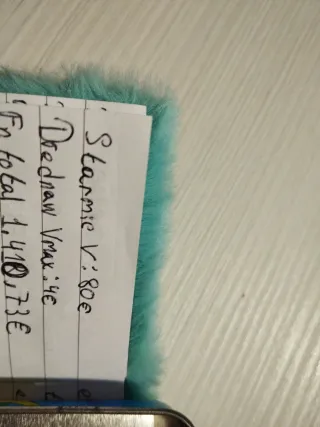 Starmie V: 80€
Drednaw Vmax: 4€
En total 1,410,73€